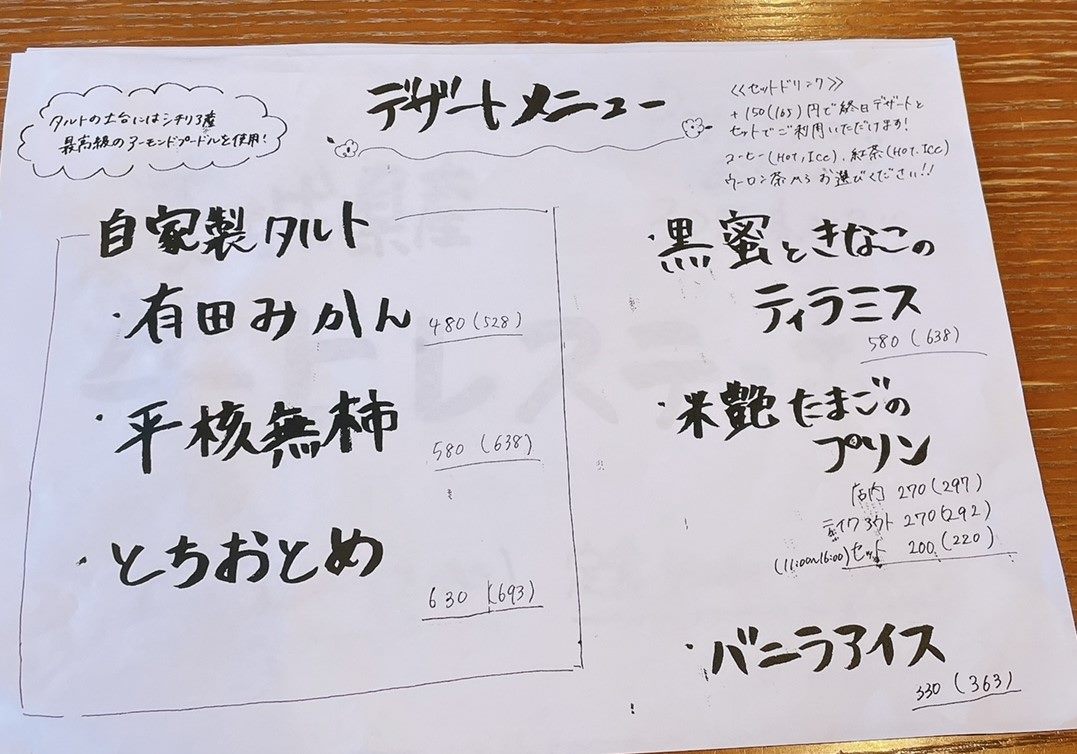 タルトの土台にはシチリア産
最高級のアーモンドプードルを使用！
デザートメニュー
<<セットドリンク>>
+150(165)円で終日デザートと
セットでご利用いただけます！
コーヒー(Hot, Ice)、紅茶(Hot, Ice)
ウーロン茶からお選びください!!
自家製タルト
・有田みかん
480(528)
・平核無柿
580(638)
・とちおとめ
630(693)
・黒蜜ときなこの
ティラミス
580(638)
・米艶たまごの
プリン
店内 270(297)
テイクアウト 270(292)
(11:00~16:00)セット 200(220)
・バニラアイス
330(363)